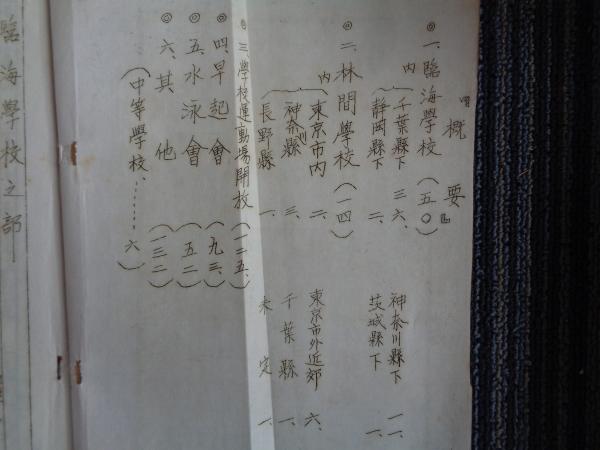 『概要』
◎一、臨海學校（五〇）
内
千葉縣下 三六、 神奈川縣下 一一、
静岡縣下 二、 茨城縣下 一、
◎二、林間學校（一四）
内
東京市内 二、 東京市外近郊 六、
神奈川縣 三、 千葉縣 一、
長野縣 一、 未定 一、
◎三、學校運動場開放（一二五、）
◎四、早起會（九三、）
◎五、水泳會（五二）
◎六、其他（一三二）
（中等學校、………六）
臨海學校之部